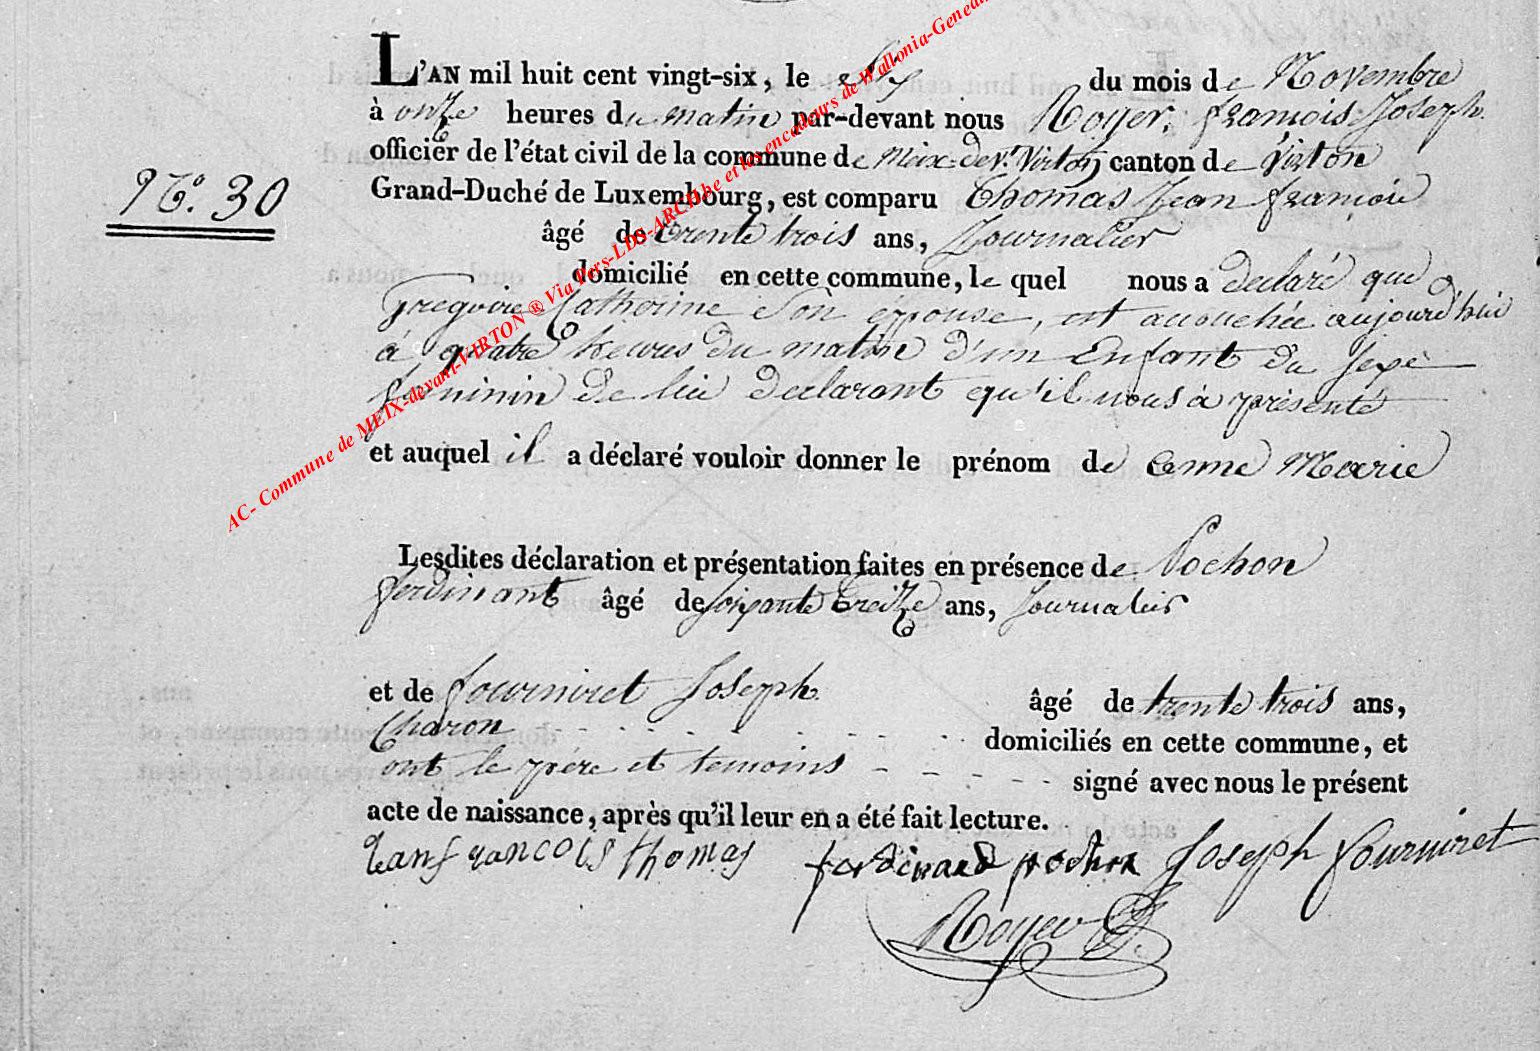 L'AN mil huit cent vingt-six, le du mois de Novembre
à onze heures du matin par-devant nous Royer, françois Joseph
officier de l'état civil de la commune de Meix-devt. Virton canton de Virton
N.° 30
Grand-Duché de Luxembourg, est comparu Thomas Jean françois
âgé de trente trois ans, Journalier
domicilié en cette commune, le quel nous a declaré que
Gregoire Catherine son épouse, est accouchée aujourd'hui
à quatre heures du matin d'un Enfant du sexe
feminin de lui declarant qu'il nous à présenté
et auquel il a déclaré vouloir donner le prénom de anne Marie
Lesdites déclaration et présentation faites en présence de Pochon
ferdinant âgé de soixante treize ans, Journalier
et de fourniret Joseph âgé de trente trois ans,
Charon domiciliés en cette commune, et
ont le père et temoins signé avec nous le présent
acte de naissance, après qu'il leur en a été fait lecture.
Jean francois thomas ferdinand pochon Joseph fourniret
Royer
AC- Commune de MEIX-devant-VIRTON ® Via Pers-LDS-ARCH.be et les encadeurs de Wallonia-Genealo